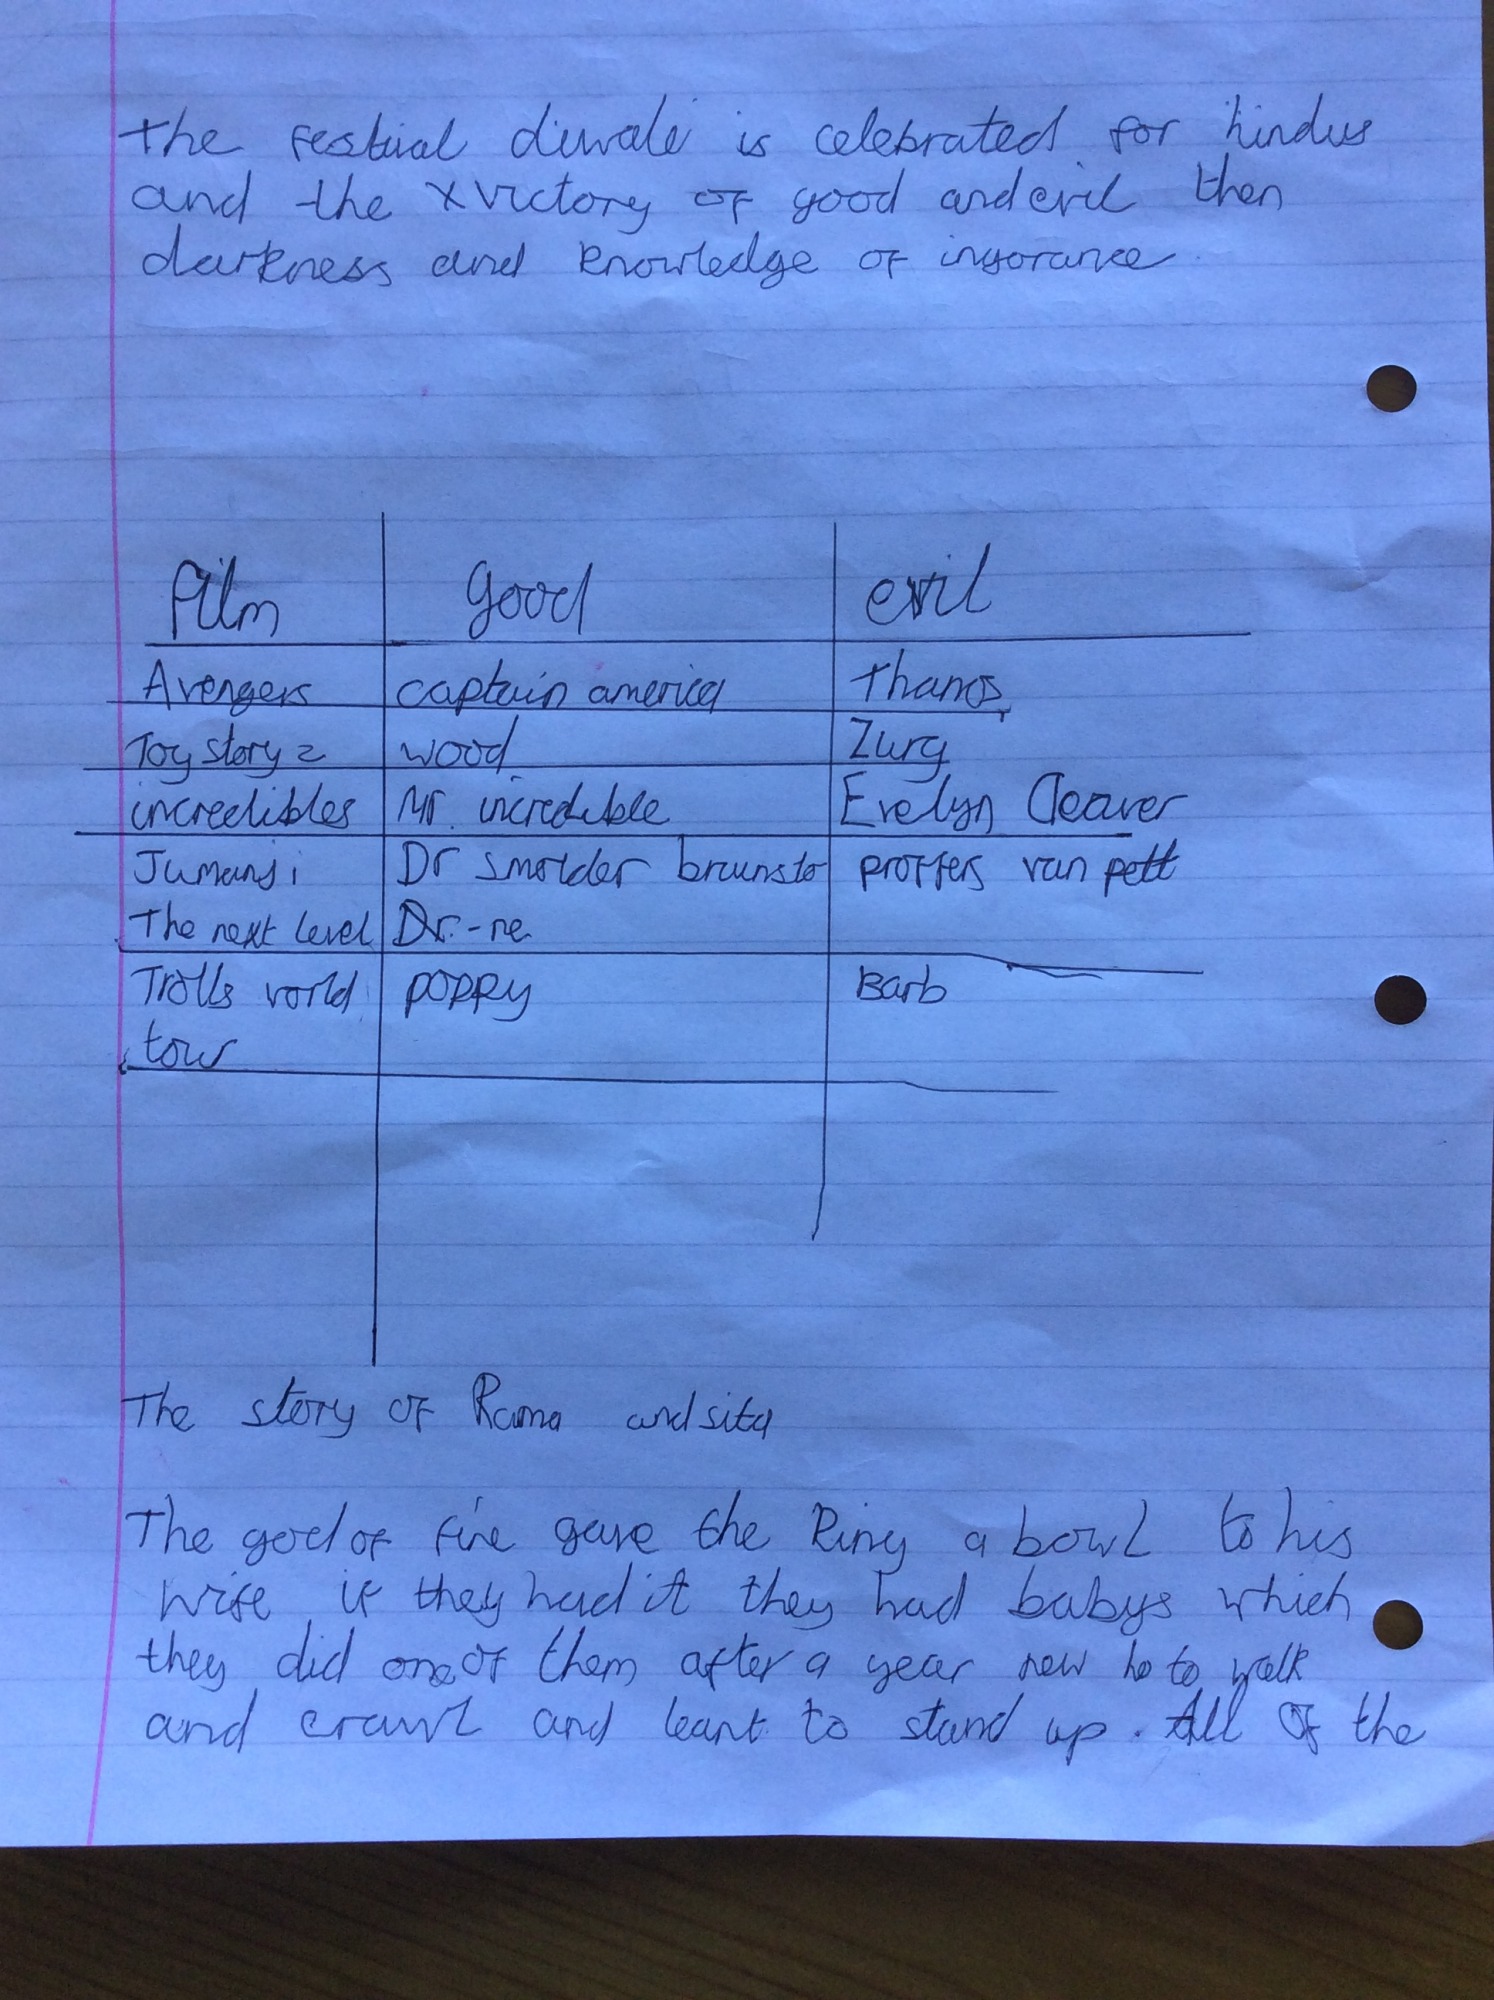 The festival diwali is celebrated for hindus
and the victory of good and evil then
darkness and knowledge of ingorance
Film good evil
Avengers captain america Thanos
Toy story 2 wood Zurg
incredibles Mr. incredible Evelyn Cleaver
Jumanji Dr smolder braunsto proffers van pett
The next level Dr.-ne
Trolls world poppy Barb
tour
The story of Rama and sita
The god of fire gave the King a bowl to his
wife if they had it they had babys which
they did one of them after a year new ho to walk
and crawl and leant to stand up. All of the